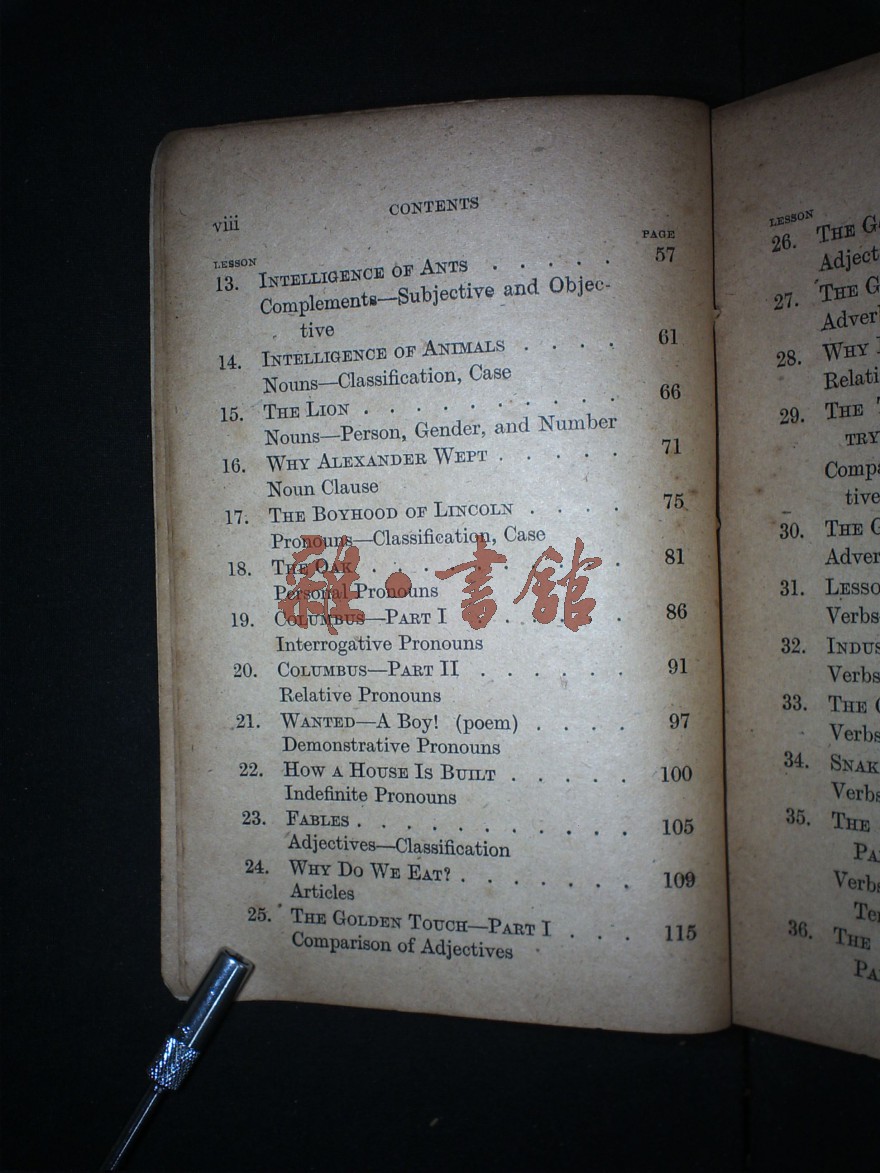 viii
CONTENTS
LESSON
PAGE
13. INTELLIGENCE OF ANTS . . . . . 57
Complements—Subjective and Objec-
tive
14. INTELLIGENCE OF ANIMALS . . . . 61
Nouns—Classification, Case
15. THE LION . . . . . . . . . . 66
Nouns—Person, Gender, and Number
16. WHY ALEXANDER WEPT . . . . . 71
Noun Clause
17. THE BOYHOOD OF LINCOLN . . . . 75
Pronouns—Classification, Case
18. THE OAK . . . . . . . . . . 81
Personal Pronouns
19. COLUMBUS—PART I . . . . . . 86
Interrogative Pronouns
20. COLUMBUS—PART II . . . . . . 91
Relative Pronouns
21. WANTED—A BOY! (poem) . . . . 97
Demonstrative Pronouns
22. HOW A HOUSE IS BUILT . . . . . 100
Indefinite Pronouns
23. FABLES . . . . . . . . . . . 105
Adjectives—Classification
24. WHY DO WE EAT? . . . . . . . 109
Articles
25. THE GOLDEN TOUCH—PART I . . . 115
Comparison of Adjectives
雜·書館
LESSON
26. THE
27. THE
28. WHY
29. THE
TRY
tive
30. THE
31.
Verbs
32.
Verbs
33. THE
Verbs
34.
Verbs
35. THE
Verbs
36. THE